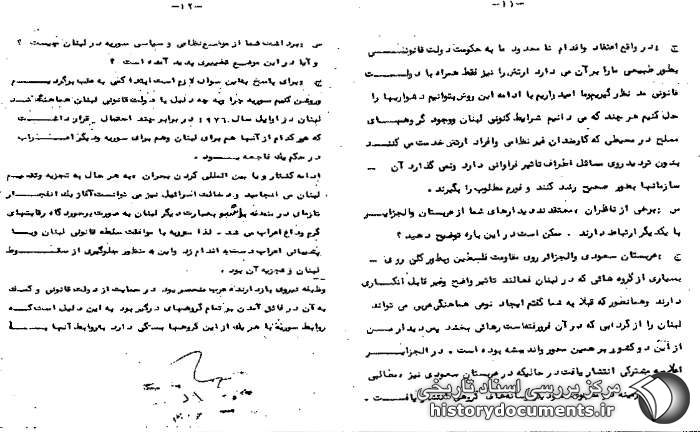 -۱۱-
ج : در واقع اعتقاد واقدام نا محدود ما به حکومت دولت قانونی
بطور طبیعی مارا بر آن می دارد ارتش را نیز فقط همراه با دولت
قانونی مد نظر گیریم وما امیدواریم با ادامه این روش بتوانیم دشواریها را
حل کنیم هر چند که می دانیم شرایط کنونی لبنان ووجود گروههای
مسلح در محیطی که کارمندان غیر نظامی وافراد ارتش خدمت می کنند
بدون تردید روی مسائل اطراف تاثیر فراوانی دارد ونمی گذارد آن
سازمانها بطور صحیح رشد کنند و فورم مطلوب را بگیرند .
س : برخی از ناظران معتقدند دیدارهای شما از عربستان والجزایر
با یکدیگر ارتباط دارند . ممکن است در این باره توضیح دهید ؟
ج : عربستان سعودی والجزائر روی مقاومت فلسطین وبطور کلی روی
بسیاری از گروه هائی که در لبنان فعالند تاثیر واضح وغیر قابل انکاری
دارند وهمانطور که قبلا به شما گفتم ایجاد نوعی هماهنگی عربی می تواند
لبنان را از گردابی که در آن فرورفته است رهائی بخشد پس دیدار من
از این دو کشور بر همین محور واندیشه بوده است . در الجزایر
اعلامیه مشترکی انتشار یافت در حالیکه در عربستان سعودی نیز مطالبی
-۱۲-
س : برداشت شما از موضع نظامی و سیاسی سوریه در لبنان چیست ؟
و آیا در این موضع تغییری پدید آمده است ؟
ج : برای پاسخ باین سوال لازم است ابتدا کمی به عقب برگردیم
وروشن کنیم سوریه چرا وبه چه دلیل با دولت قانونی لبنان هماهنگ شد
لبنان در اوایل سال ۱۹۷۶ در برابر چند احتمال قرار داشت
که هر کدام از آنها هم برای لبنان وهم برای سوریه ودیگر اعراب
در حکم یک فاجعه بود .
ادامه کشتار و یا بین المللی کردن بحران به هر حال به تجزیه وتقسیم
لبنان می انجامید و دخالت اسرائیل نیز می توانست آغاز یک انفجار
تازه‌ای در منطقه باشد وبعبارت دیگر لبنان به صورت بوجود گاه رقابتهای
گرم وداغ اعراب می شد . لذا سوریه با موافقت سلطه قانونی لبنان وبا
پشتیبانی اعراب دست به اقدام زد واین به منظور جلوگیری از سقوط
لبنان و تجزیه آن بود .
وظیفه نیروی بازدارنده عرب منحصر بود در حمایت از دولت قانونی و کمک
به آن در فائق آمدن بر تمام گروههای درگیر بود به این دلیل است که
روابط سوریه با هر یک از این گروهها بستگی دارد به روابط آنها با
مرکز بررسی اسناد تاریخی
historydocuments.ir